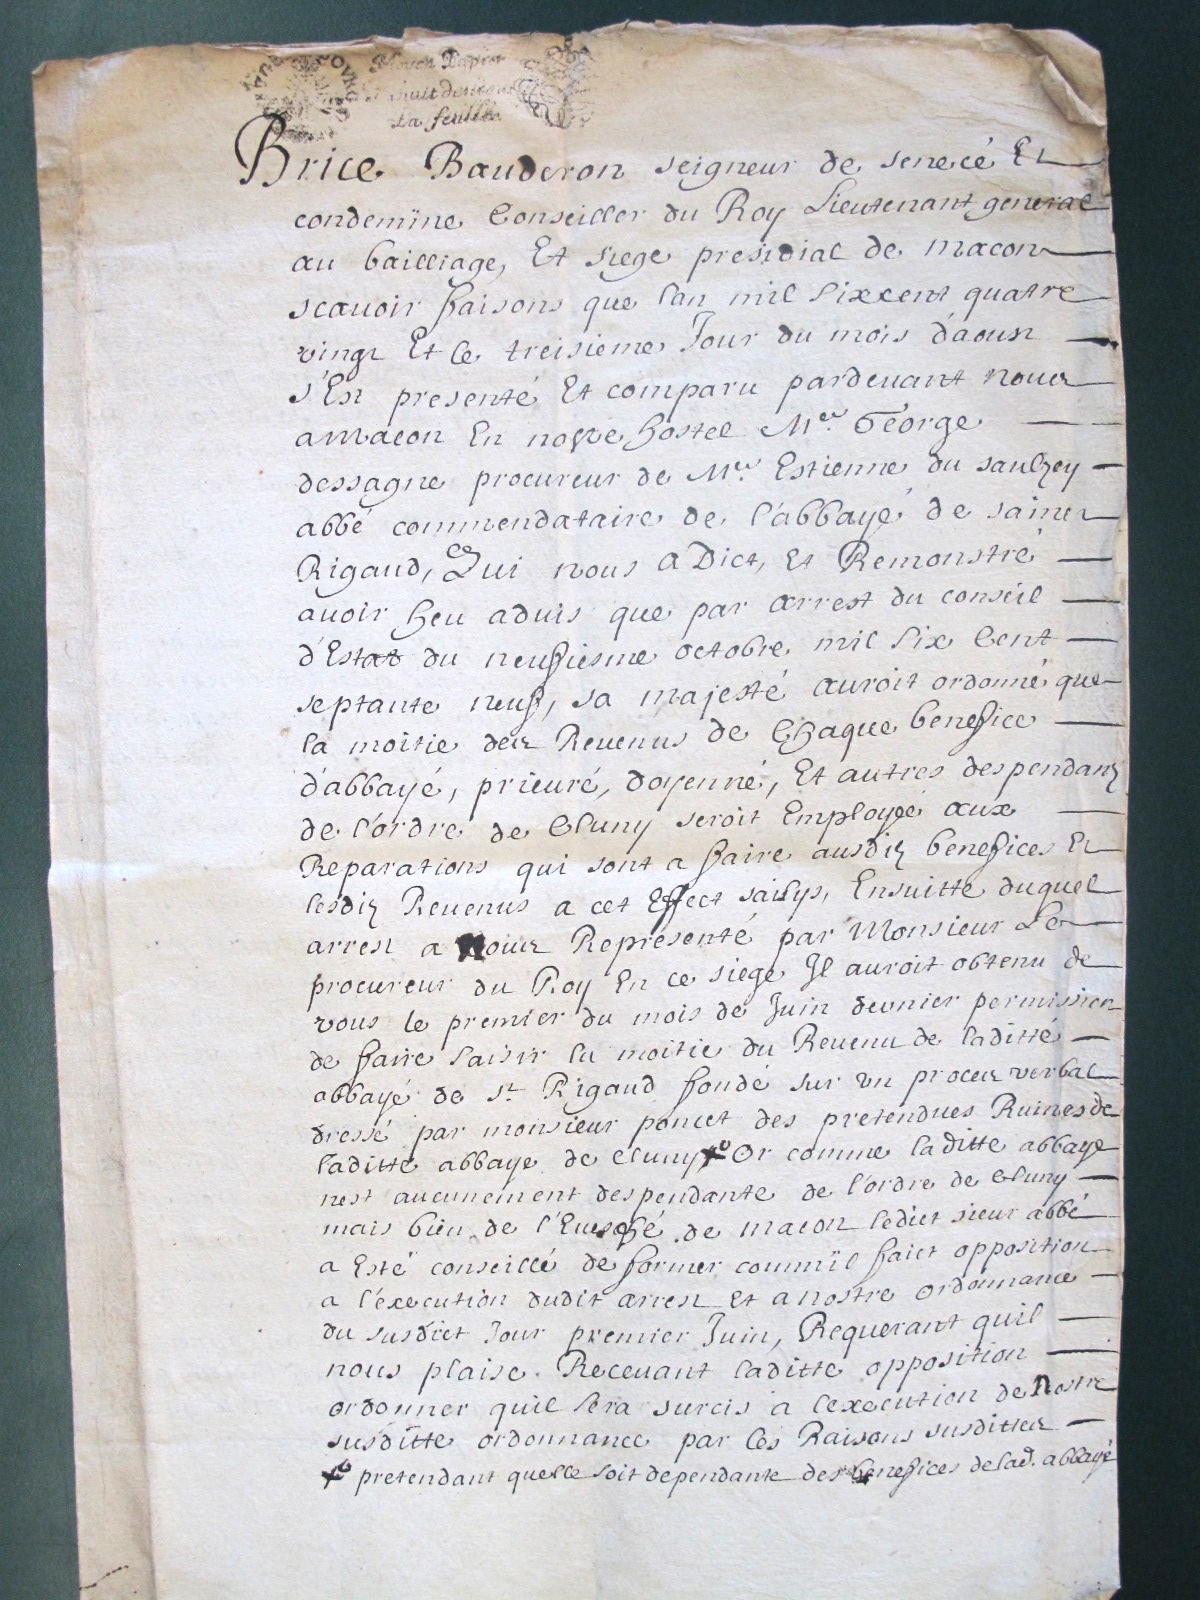 Moyen Papier
huit deniers
La feuille
Brice Bauderon seigneur de senecé Et
condemine Conseiller du Roy Lieutenant general
au bailliage, Et siege presidial de macon
scauoir faisons que lan mil sixcent quatre
vingt Et le treisieme Jour du mois d'aoust
s'Est presenté Et comparu pardeuant nous
a macon En nostre hostel Me. George
dessagne procureur de Mre. Estienne du saulzey
abbé commendataire de l'abbayé de sainct
Rigaud, Qui nous a Dict, et Remonstré
auoir heu aduis que par arrest du conseil
d'Estat du neufiesme octobre mil six Cent
septante neuf, sa majesté auroit ordonné que
la moitie des Reuenus de Chaque benefice
d'abbayé, prieuré, doyenné, Et autres despendants
de l'ordre de Cluny seroit Employée aux
Reparations qui sont a faire ausdits benefices Et
lesdits Reuenus a cet Effect saisys, Ensuitte duquel
arrest a Nous Representé par Monsieur Le
procureur du Roy En ce siege Il auroit obtenu de
vous le premier du mois de Juin dernier permission
de faire saisir la moitie du Reuenu de laditte
abbayé de st Rigaud fondé sur vn proces verbal
dressé par monsieur poncet des pretendues Ruines de
laditte abbaye de Cluny Or comme laditte abbaye
nest aucunement despendante de l'ordre de Cluny
mais bien de l'Euesché de macon ledict sieur abbé
a Esté conseillé de former commil faict opposition
a l'execution dudit arrest Et a nostre ordonnance
du susdict Jour premier Juin, Requerant quil
nous plaise Receuant laditte opposition
ordonner quil sera surcis a lexecution de Nostre
susditte ordonnance par les Raisons susdittes
pretendant quelle soit dependante des benefices de lad. abbayé